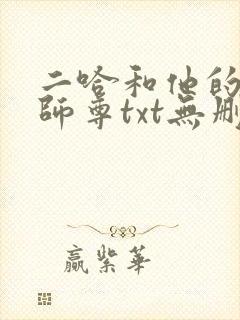 二哈和他的
師尊txt無刪
贏紫華